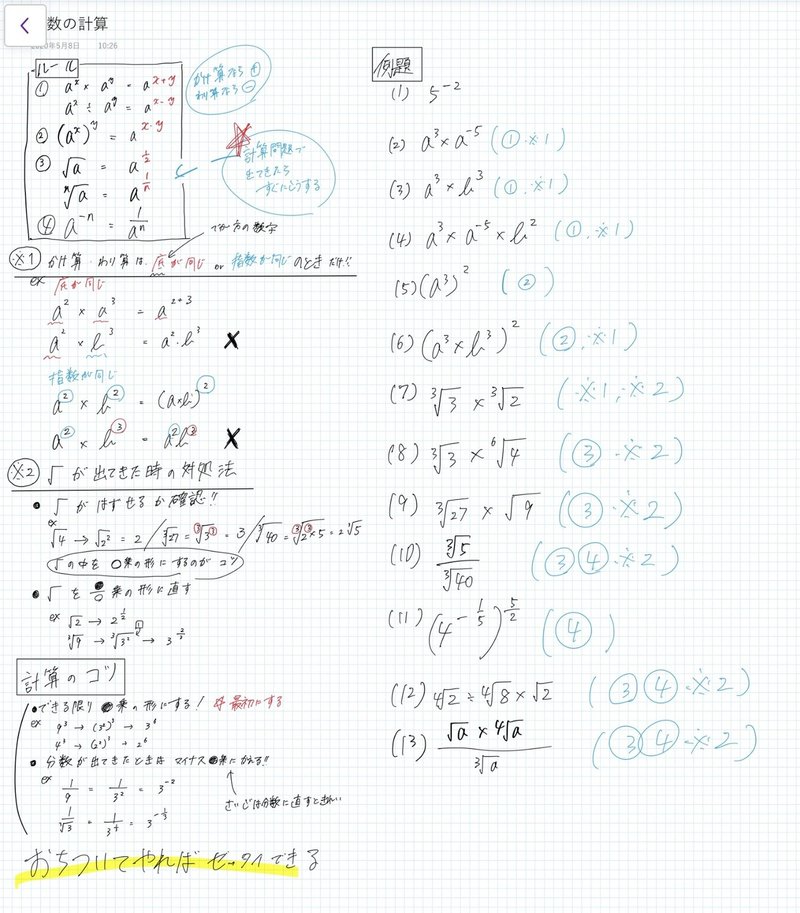 数の計算
2020年5月8日 10:26
ルール
① a^x × a^y = a^{x+y}
a^x ÷ a^y = a^{x-y}
② (a^x)^y = a^{x・y}
③ √a = a^{1/2}
ⁿ√a = a^{1/n}
④ a^{-n} = 1/a^n
かけ算なら ⊕
わり算なら ⊖
計算問題で
出てきたら
すぐにこうする
でかい方の数字
※1 かけ算・わり算は、底が同じ or 指数が同じのときだけ!!
ex 底が同じ
a² × a³ = a^{2+3}
a² × b³ = a²・b³ ×
指数が同じ
a² × b² = (a×b)²
a² × b³ = a²b³ ×
※2 √ が出てきた時の対処法
● √ がはずせるか確認!!
ex
√4 → √2² = 2 / ³√27 = ³√3³ = 3 / ³√40 = ³√2³×5 = 2³√5
√の中を ○乗の形にするのがコツ
● √ を 乗の形に直す
ex √2 → 2^{1/2}
³√9 → ³√3² → 3^{2/3}
計算のコツ
● できる限り 乗の形にする! 最初にする
ex 9³ → (3²)³ → 3⁶
4³ → (2²)³ → 2⁶
● 分数が出てきたときは マイナス 乗にかえる!!
ex
1/9 = 1/3² = 3^{-2}
さいごは分数に直すときれい
おちついてやれば ゼッタイできる
例題
(1) 5^{-2}
(2) a³×a^{-5} (①・※1)
(3) a³×b³ (①・※1)
(4) a³×a^{-5}×b² (①・※1)
(5) (a³)² (②)
(6) (a³×b³)² (②・※1)
(7) ³√3 × ³√2 (※1・※2)
(8) ³√3 × ⁶√4 (③・※2)
(9) ³√27 × √9 (③・※2)
(10) ³√5/³√40 (③④・※2)
(11) (4^{-1/5})^{5/2} (④)
(12) ⁴√2 ÷ ⁴√8 × √2 (③④・※2)
(13) √a × ⁴√a / ³√a (③④・※2)